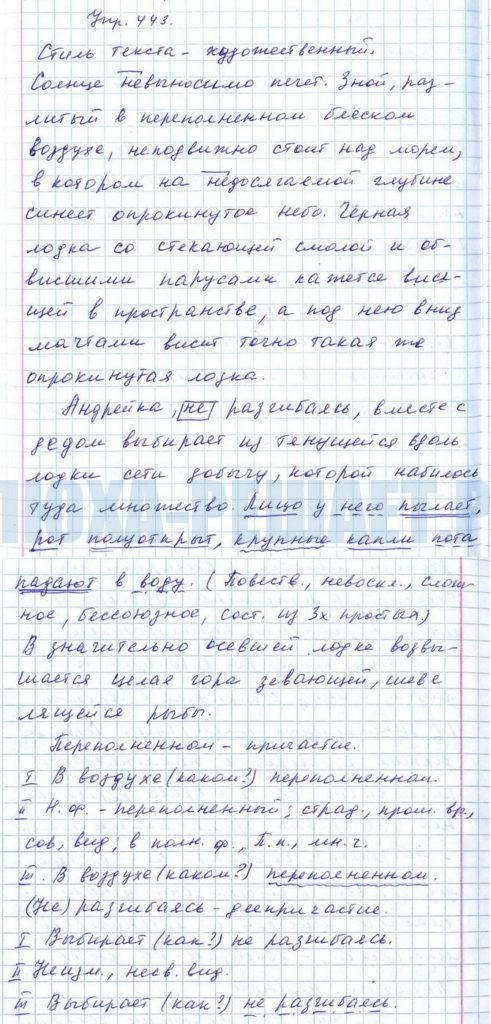 Упр. 443.
Стиль текста - художественный.
Солнце невыносимо печет. Зной, раз-
литый в переполненном блеском
воздухе, неподвижно стоит над морем,
в котором на недосягаемой глубине
синеет опрокинутое небо. Чёрная
лодка со стекающей смолой и об-
висшими парусами кажется вися-
щей в пространстве, а под нею вниз
мачтами висит точно такая же
опрокинутая лодка.
Андрейка, не разгибаясь, вместе с
дедом выбирает из тянущейся вдоль
лодки сети добычу, которой набилось
туда множество. Лицо у него пылает,
рот полуоткрыт, крупные капли пота
падают в воду. (Повеств., невоскл., слож-
ное, бессоюзное, сост. из 3х простых)
В значительно осевшей лодке возвы-
шается целая гора зевающей, шеве
лящейся рыбы.
Переполненном - причастие.
I В воздухе (каком?) переполненном.
II Н.ф. - переполненный; страд., прош. вр.,
сов. вид; в полн. ф., П.п., мн.ч.
III. В воздухе (каком?) переполненном.
(Не) разгибаясь - деепричастие.
I Выбирает (как?) не разгибаясь.
II Неизм., несв. вид.
III Выбирает (как?) не разгибаясь.